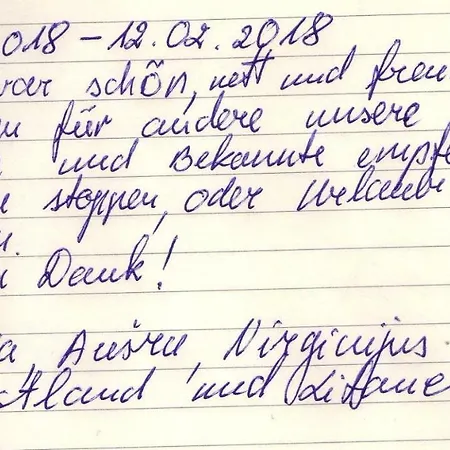 018 - 12.02.2018
var schön, nett und freu
u für andere unsere
und Bekannte empfe
e stoppen, oder Urlaub
n.
i Dank!
a, Aušra, Virginijus
ttland und Litaue